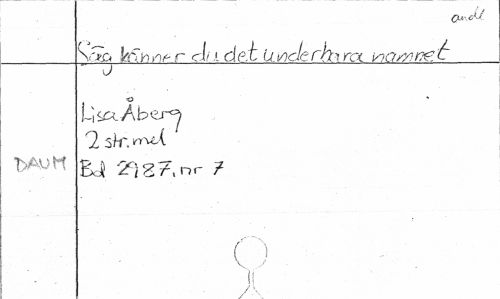 andl
Säg känner du det underbara namnet
Lisa Åberg
2 str. mel
DAUM Bd 2987, nr 7